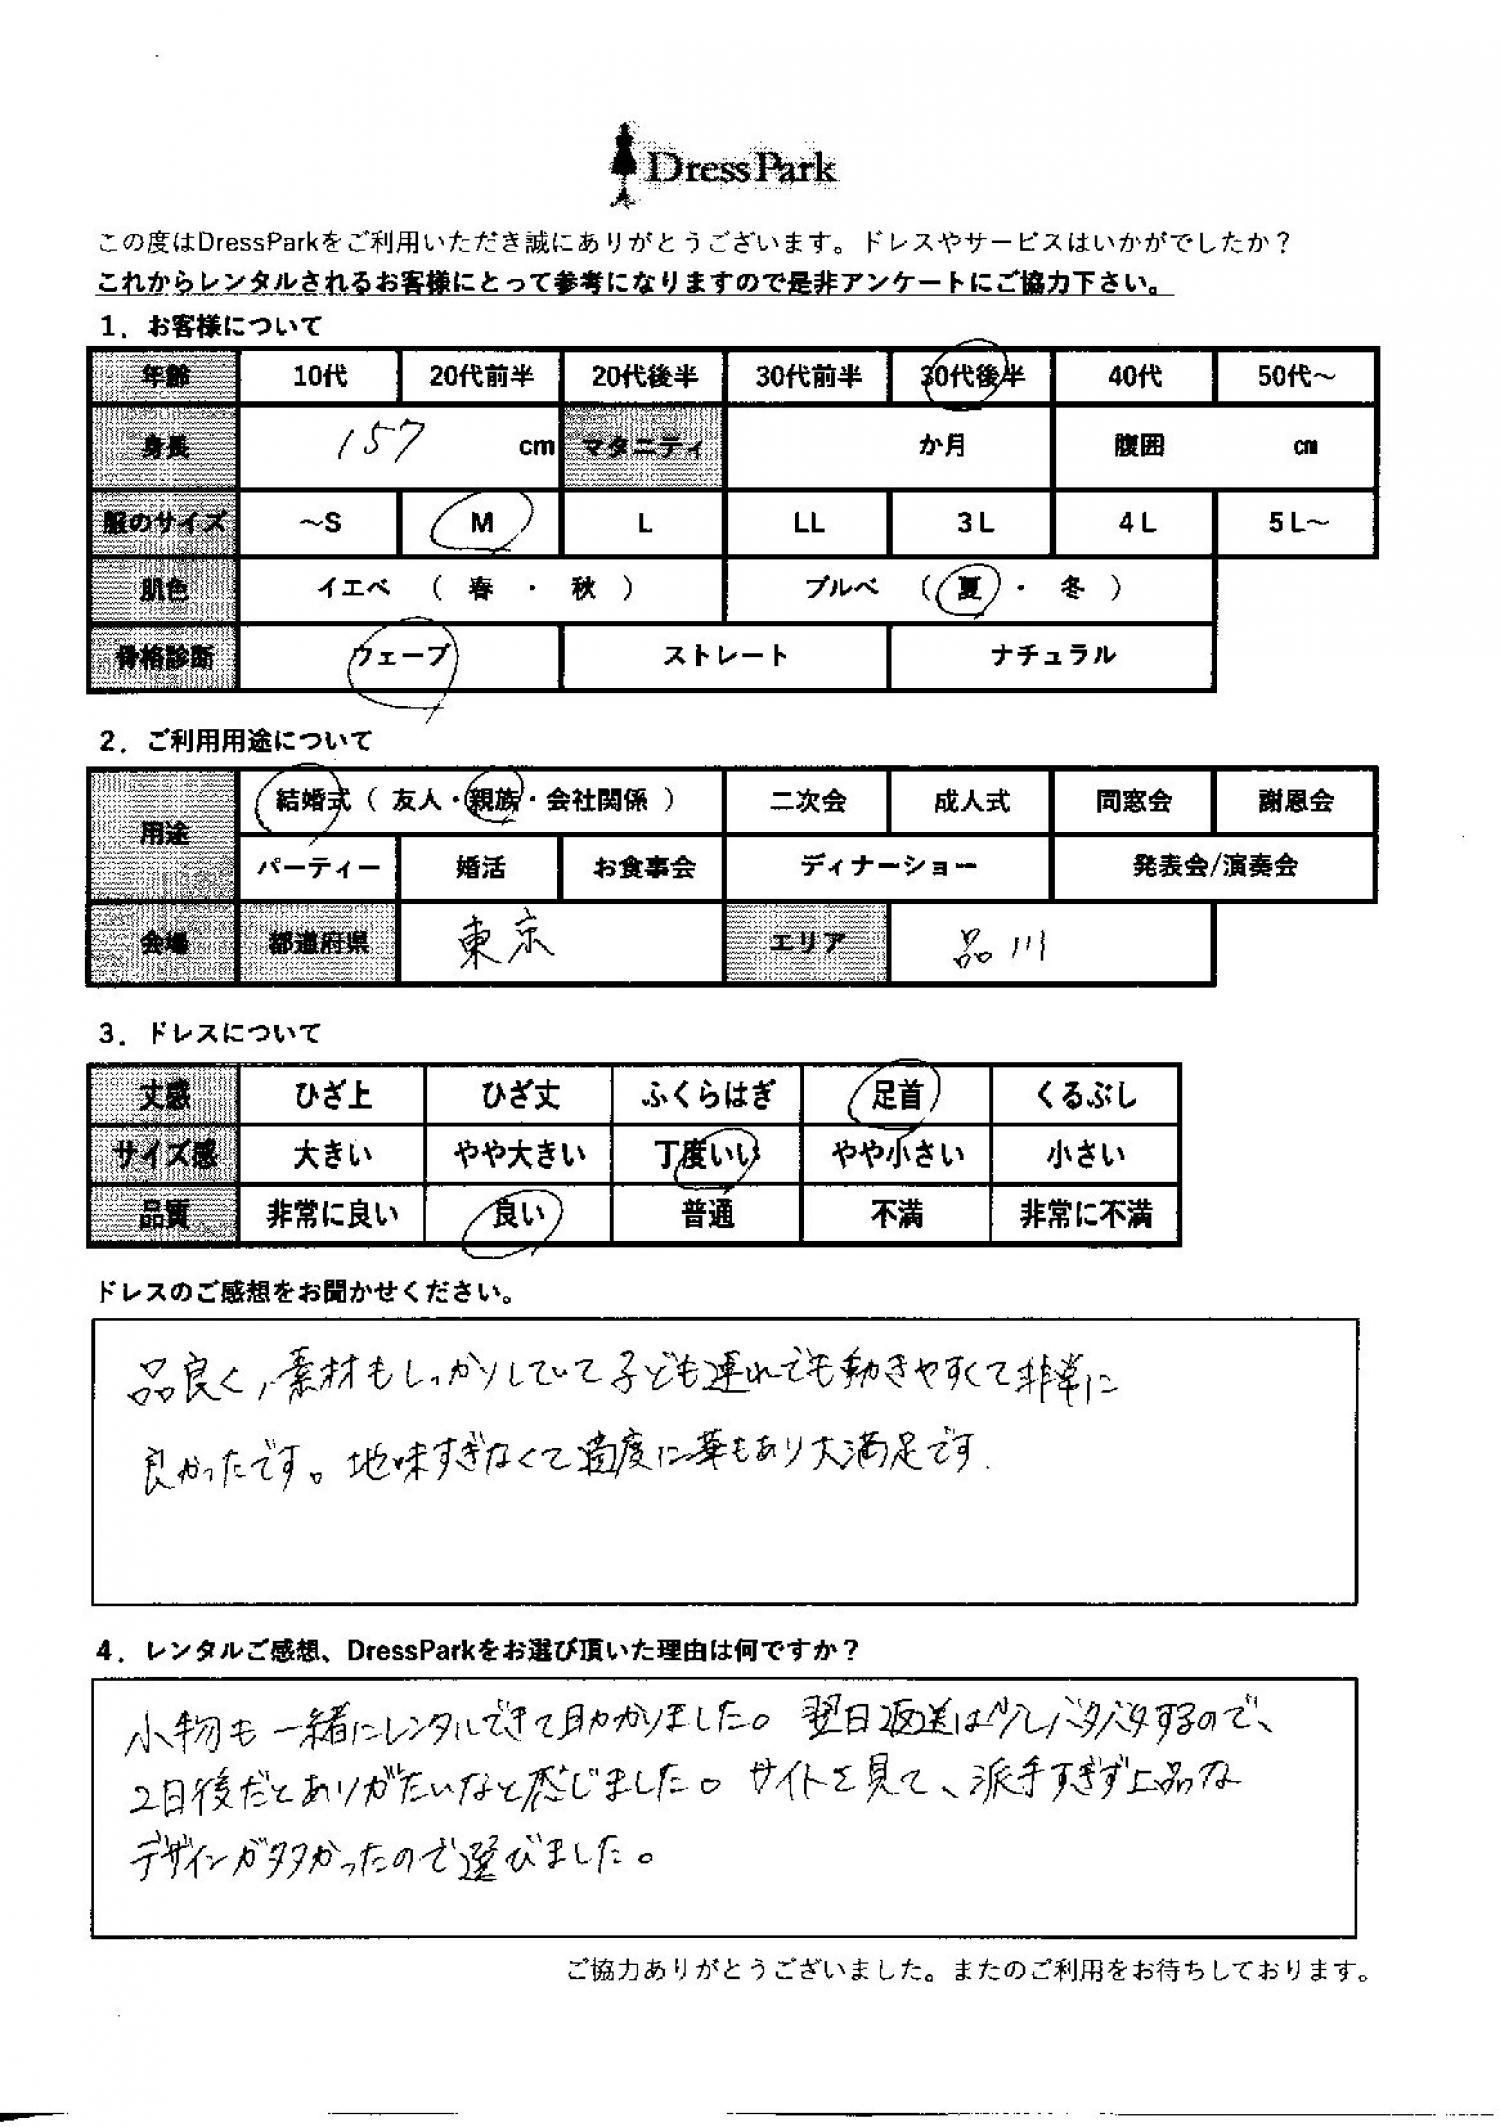 DressPark
この度はDressParkをご利用いただき誠にありがとうございます。ドレスやサービスはいかがでしたか？
これからレンタルされるお客様にとって参考になりますので是非アンケートにご協力下さい。
1．お客様について
年齢 10代 20代前半 20代後半 30代前半 30代後半 40代 50代～
身長 157 cm マタニティ か月 腹囲 ㎝
服のサイズ ～S M L LL 3L 4L 5L～
肌色 イエベ （ 春 ・ 秋 ） ブルベ （ 夏 ・ 冬 ）
骨格診断 ウェーブ ストレート ナチュラル
2．ご利用用途について
用途 結婚式（ 友人・親族・会社関係 ） 二次会 成人式 同窓会 謝恩会
パーティー 婚活 お食事会 ディナーショー 発表会/演奏会
会場 都道府県 東京 エリア 品川
3．ドレスについて
丈感 ひざ上 ひざ丈 ふくらはぎ 足首 くるぶし
サイズ感 大きい やや大きい 丁度いい やや小さい 小さい
品質 非常に良い 良い 普通 不満 非常に不満
ドレスのご感想をお聞かせください。
品良く、素材もしっかりしていて子ども連れでも動きやすくて非常に
良かったです。地味すぎなくて適度に華もあり大満足です.
4．レンタルご感想、DressParkをお選び頂いた理由は何ですか？
小物も一緒にレンタルできて助かりました。翌日返送は少しバタバタするので、
2日後だとありがたいなと感じました。サイトを見て、派手すぎず上品な
デザインが多かったので選びました。
ご協力ありがとうございました。またのご利用をお待ちしております。